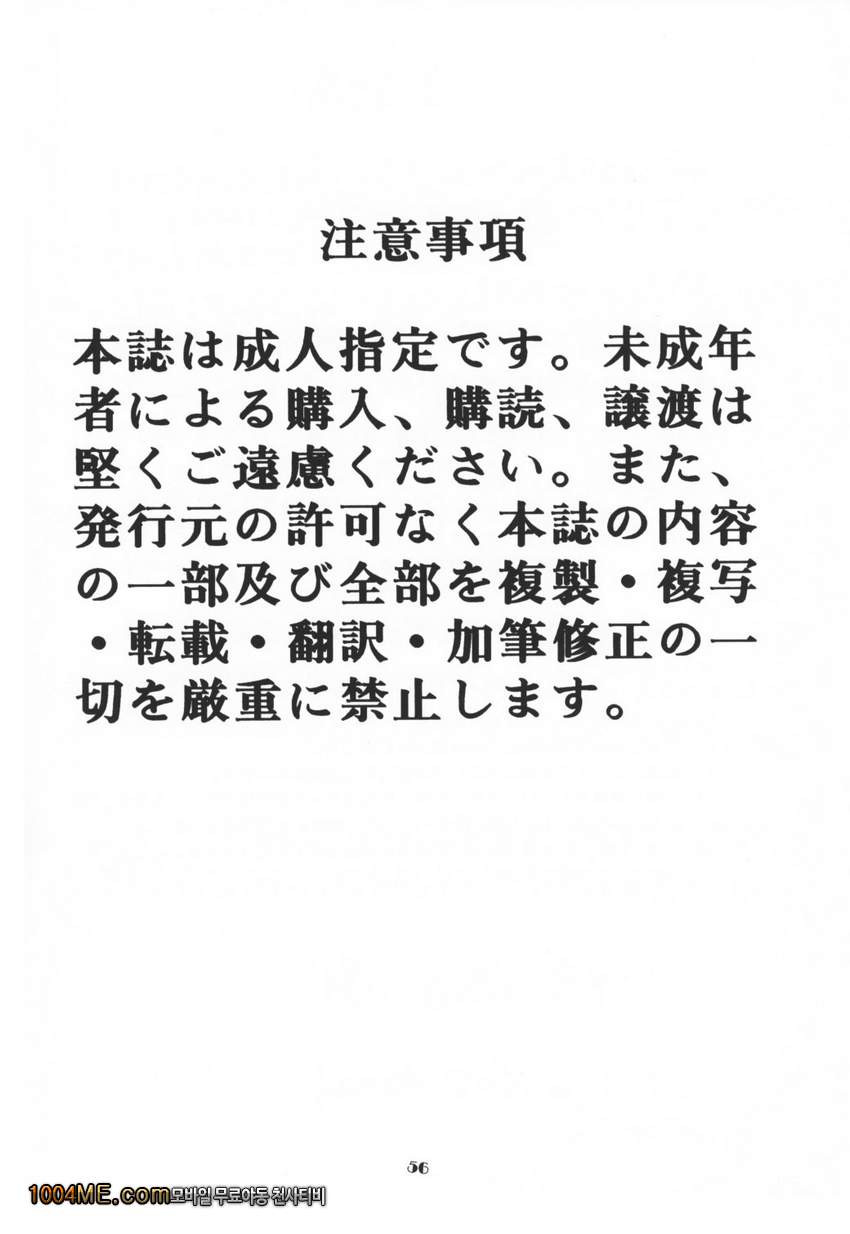 注意事項
本誌は成人指定です。未成年
者による購入、購読、譲渡は
堅くご遠慮ください。また、
発行元の許可なく本誌の内容
の一部及び全部を複製・複写
・転載・翻訳・加筆修正の一
切を厳重に禁止します。
56
1004ME.com모바일 무료야동 천사티비